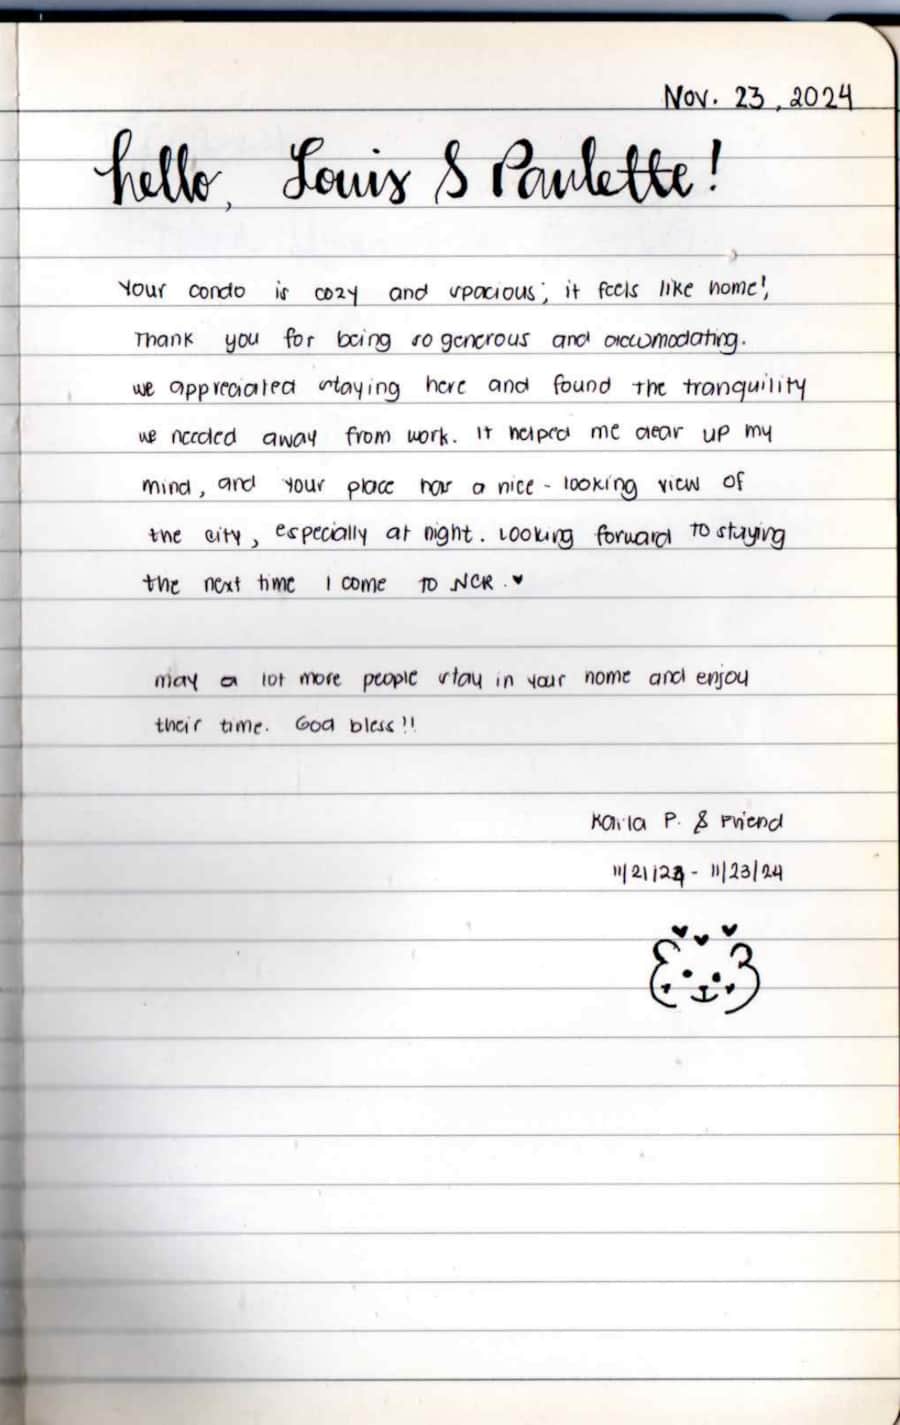 Nov. 23, 2024
hello, Louis & Paulette!
Your condo is cozy and spacious; it feels like home!,
Thank you for being so generous and accomodating.
we appreciated staying here and found the tranquility
we needed away from work. It helped me clear up my
mind, and your place has a nice-looking view of
the city, especially at night. Looking forward to staying
the next time I come to NCR. ♥
may a lot more people stay in your home and enjoy
their time. God bless!!
Karla P. & Friend
11/21/24 - 11/23/24